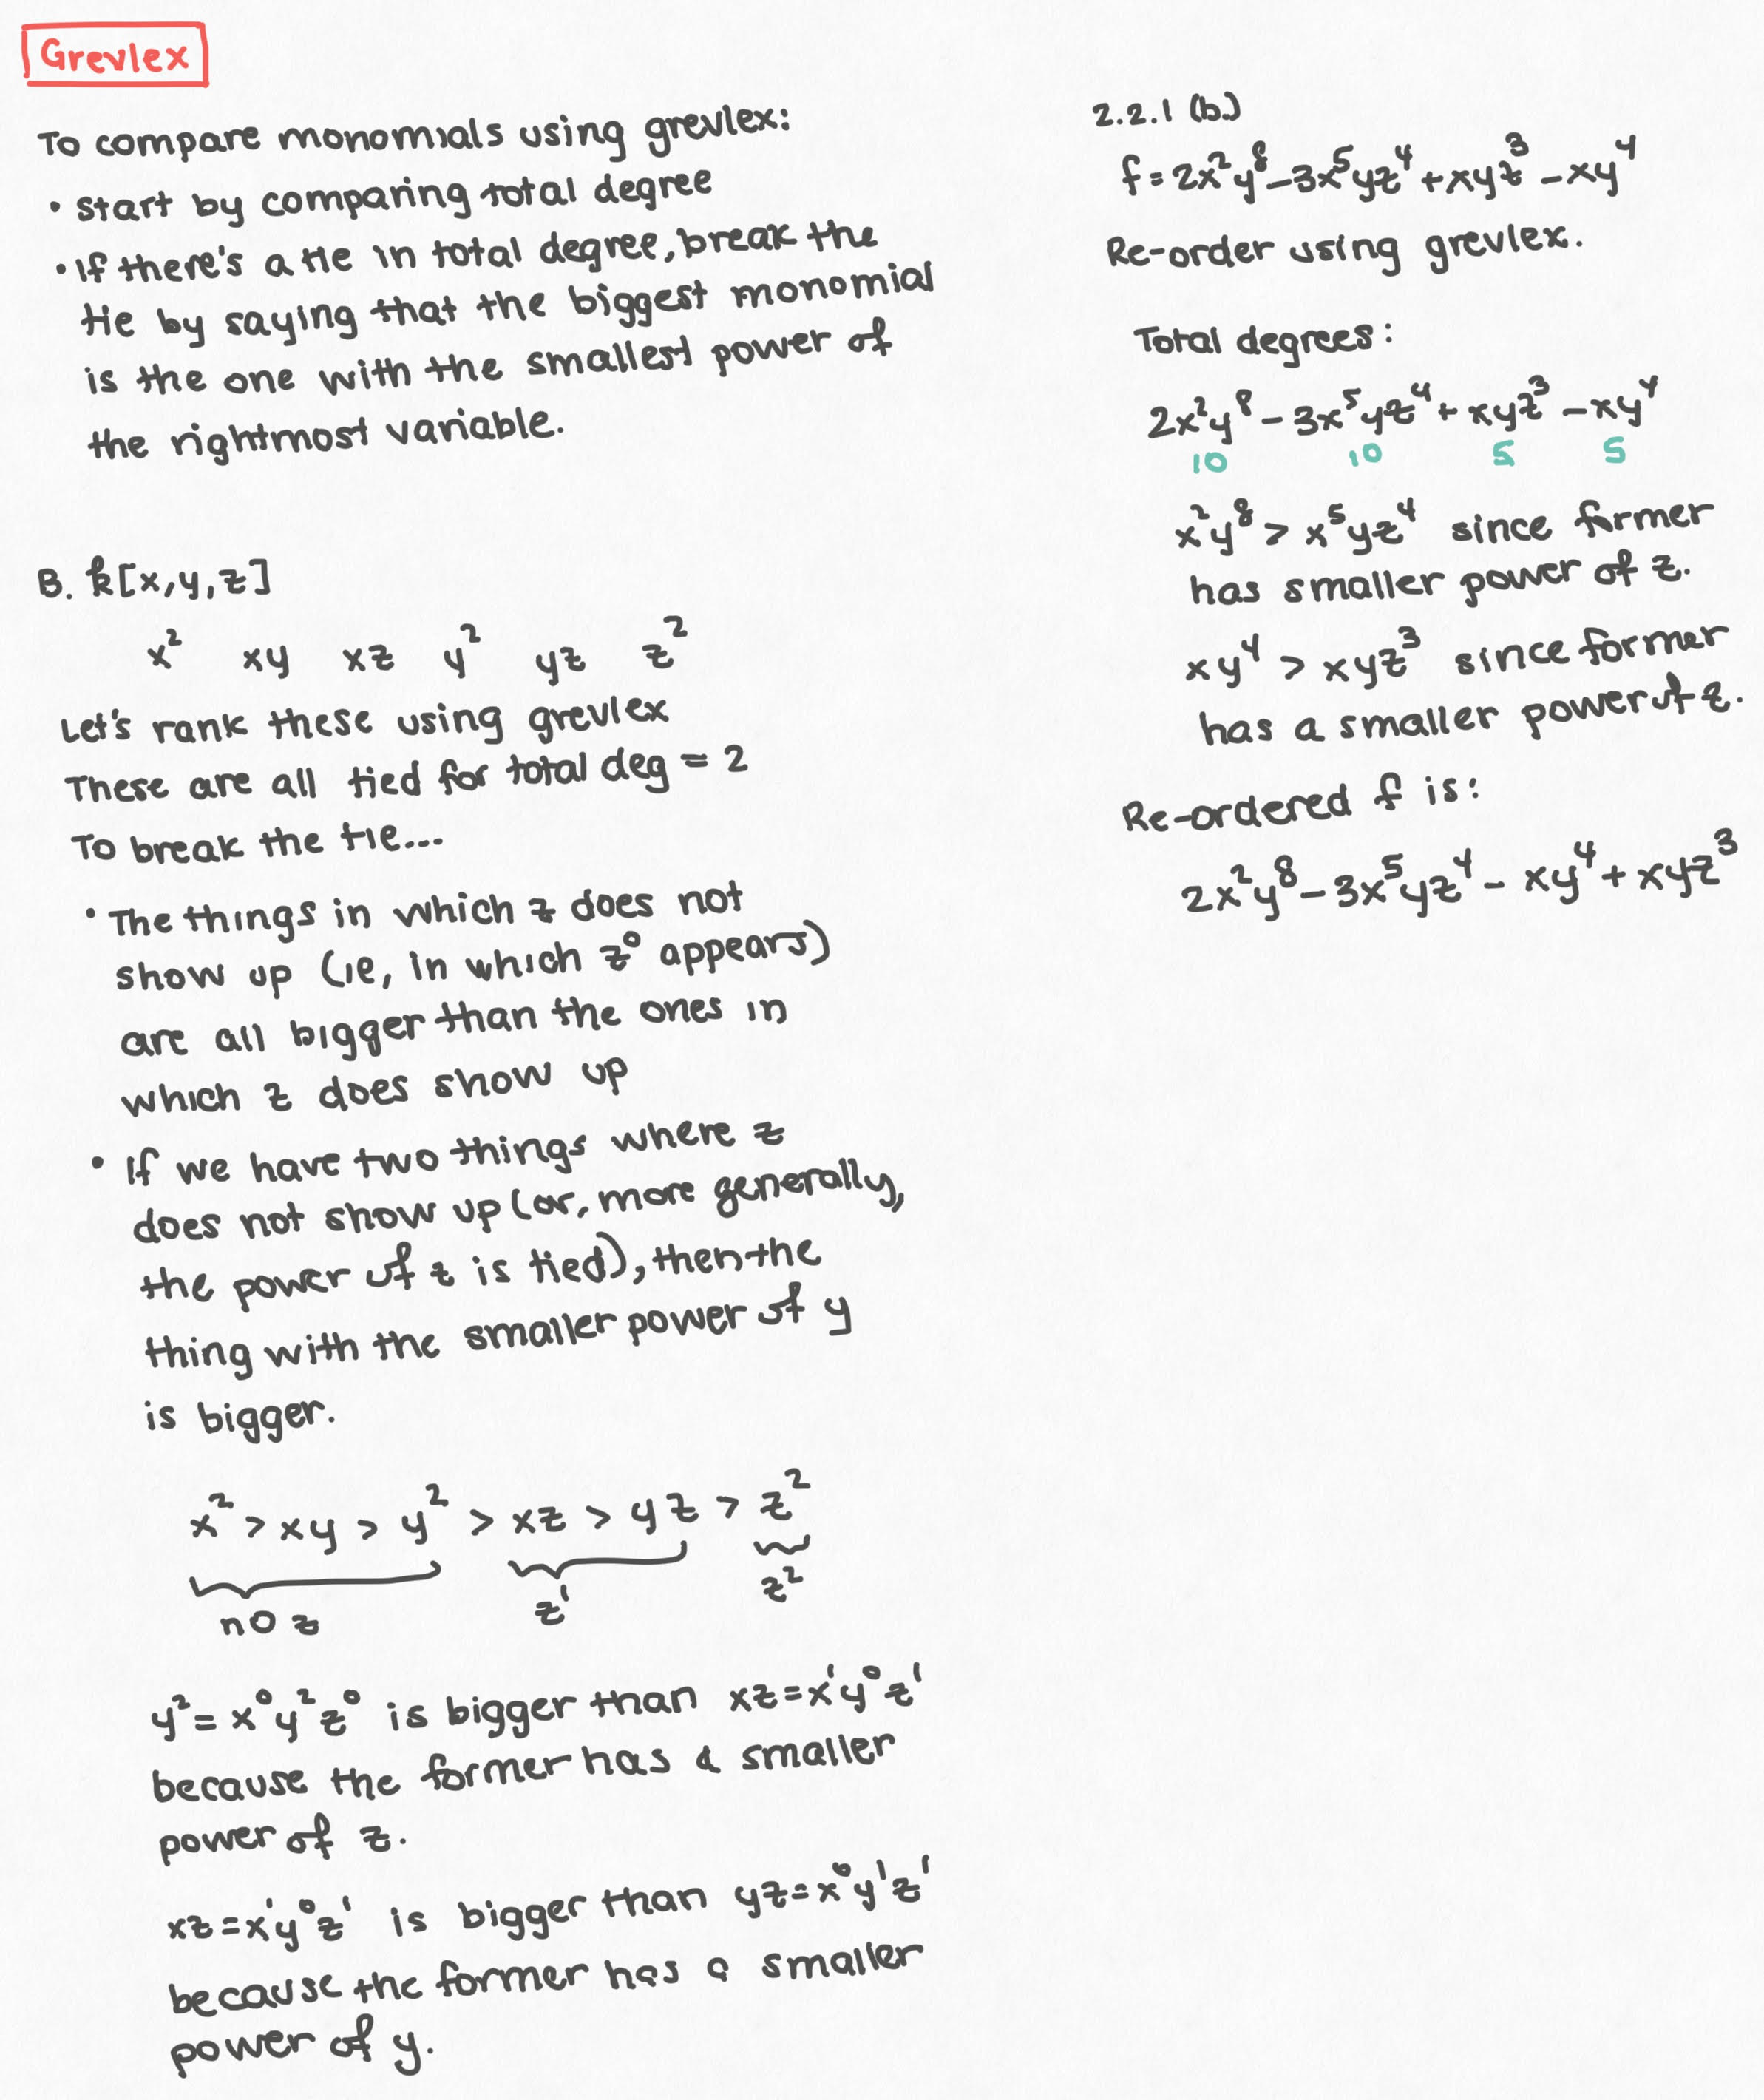 Grevlex
To compare monomials using grevlex:
• start by comparing total degree
• If there's a tie in total degree, break the
tie by saying that the biggest monomial
is the one with the smallest power of
the rightmost variable.
B. k[x,y,z]
x² xy xz y² yz z²
Let's rank these using grevlex
These are all tied for total deg = 2
To break the tie...
• The things in which z does not
show up (ie, in which z⁰ appears)
are all bigger than the ones in
which z does show up
• If we have two things where z
does not show up (or, more generally,
the power of z is tied), then the
thing with the smaller power of y
is bigger.
x² > xy > y² > xz > yz > z²
no z z¹ z²
y² = x⁰y²z⁰ is bigger than xz = x¹y⁰z¹
because the former has a smaller
power of z.
xz = x¹y⁰z¹ is bigger than yz = x⁰y¹z¹
because the former has a smaller
power of y.
2.2.1 (b.)
f = 2x²y⁸ - 3x⁵yz⁴ + xyz³ - xy⁴
Re-order using grevlex.
Total degrees:
2x²y⁸ - 3x⁵yz⁴ + xyz³ - xy⁴
10 10 5 5
x²y⁸ > x⁵yz⁴ since former
has smaller power of z.
xy⁴ > xyz³ since former
has a smaller power of z.
Re-ordered f is:
2x²y⁸ - 3x⁵yz⁴ - xy⁴ + xyz³